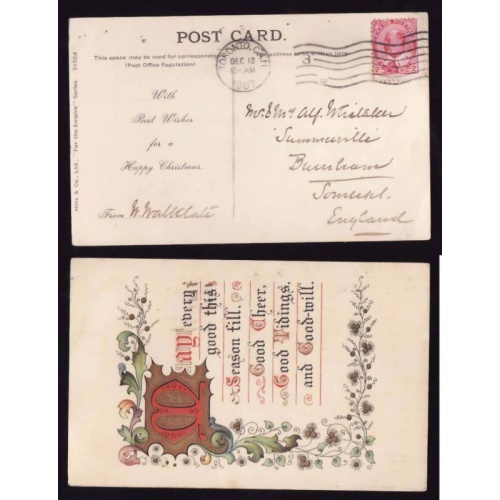 POST CARD.
This space may be used for correspondence
(Post Office Regulation)
address to be written here.
TORONTO, CAN.
DEC 12
10-AM
1907
3
With
Best Wishes
for a
Happy Christmas.
From W. Walklate
Mr. & Mrs. Alf. Whitaker
Summerville
Burnham
Somerset.
England
Hills & Co., Ltd., "For the Empire" Series. 5152d
May every
good this
Season fill,
Good Cheer,
Good Tidings,
and Good-will.